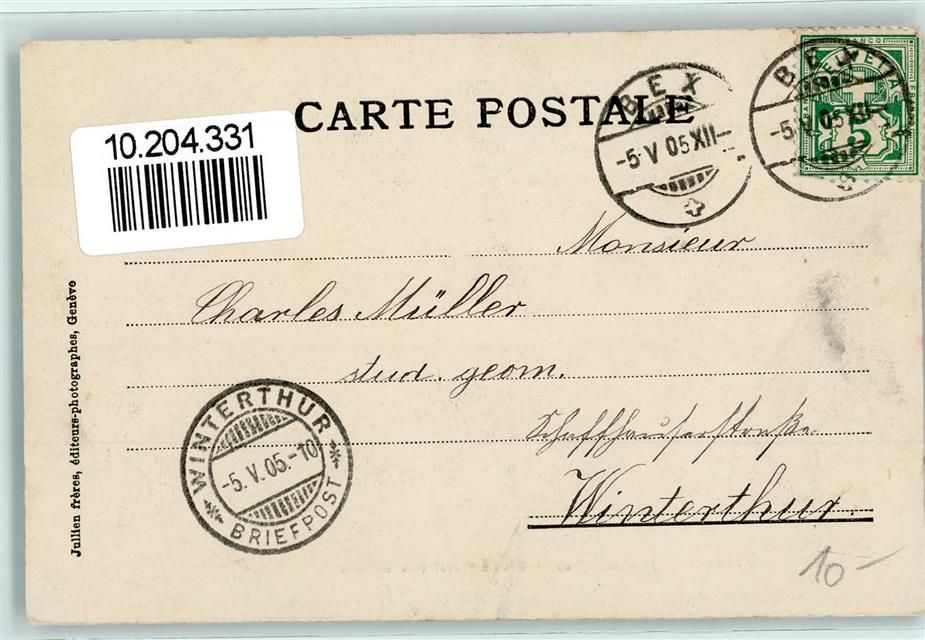 CARTE POSTALE
10.204.331
BEX
-5.V 05 XII-
BEX
-5.V 05 XII-
FRANCO
HELVETIA
5
Monsieur
Charles Müller
stud. geom.
Schaffhauserstraße.
Winterthur.
WINTERTHUR
-5.V.05.-10
BRIEFPOST
Jullien frères, éditeurs-photographes, Genève
10-